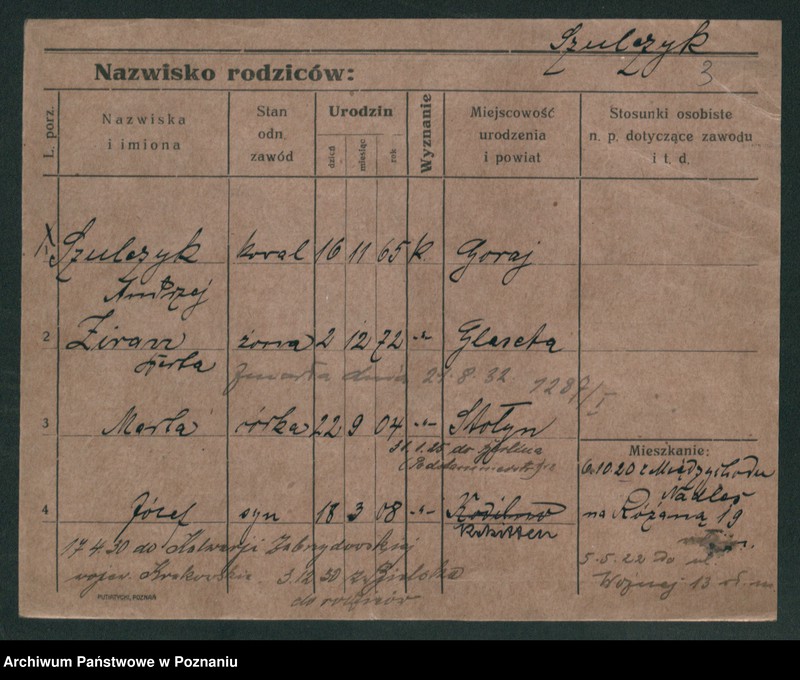 Szulczyk
3
Nazwisko rodziców:
L. porz.
Nazwiska i imiona
Stan odn. zawód
Urodzin
dzień
miesiąc
rok
Wyznanie
Miejscowość urodzenia i powiat
Stosunki osobiste n. p. dotyczące zawodu i t. d.
1 Szulczyk koval 16 11 65 k. Goraj
Andrzej
2 Ziran żona 2 12 72 -"-
zmarła dnia 21.8.32 1287/I
3 Marta córka 22 9 04 -"- Stołyn
31.1.25 do Berlina
Mieszkanie:
6.10.20 z Międzychodu
4 Józef syn 18 3 08 -"-
na Różaną 19
17.4.30 do Kalwarji Zebrzydowskiej
5.5.22 do ul.
wojew. Krakowskie. 3.12.30 z Bielska
Wojnej 13
do rodziców
PUTIATYCKI, POZNAŃ
Archiwum Państwowe w Poznaniu